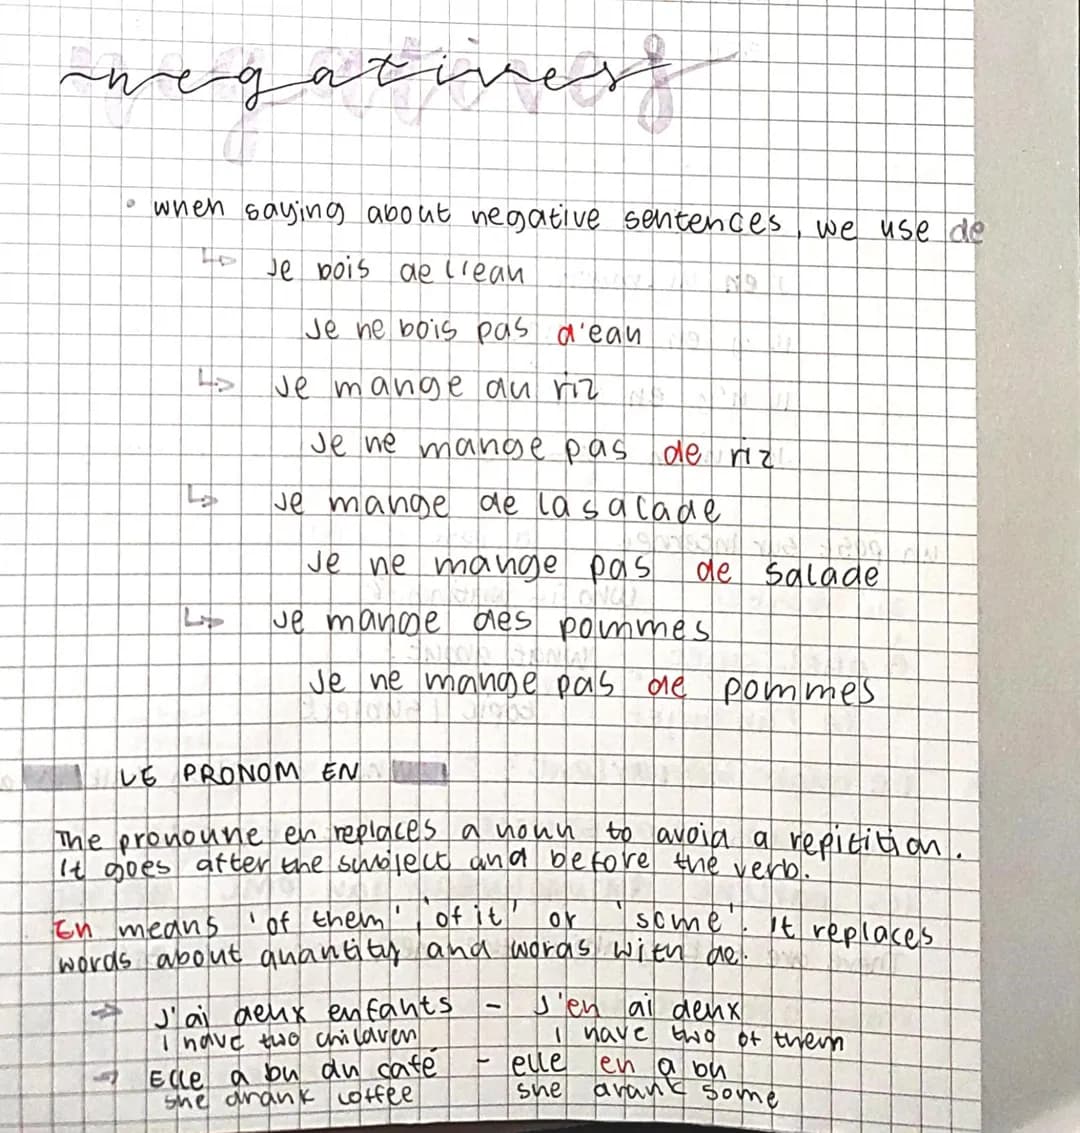 negatives
• when saying about negative sentences, we use de
↳ Je bois de l'eau
Je ne bois pas d'eau
↳ Je mange du riz
Je ne mange pas de riz
↳ Je mange de la salade
Je ne mange pas de salade
↳ Je mange des pommes
Je ne mange pas de pommes
LE PRONOM EN
The pronoune en replaces a noun to avoid a repitition.
It goes after the subject and before the verb.
En means 'of them', 'of it' or 'some'. It replaces
words about quantity and words with de.
→ J'ai deux enfants - J'en ai deux
I have two children I have two of them
→ Elle a bu du café - elle en a bu
she drank coffee she drank some